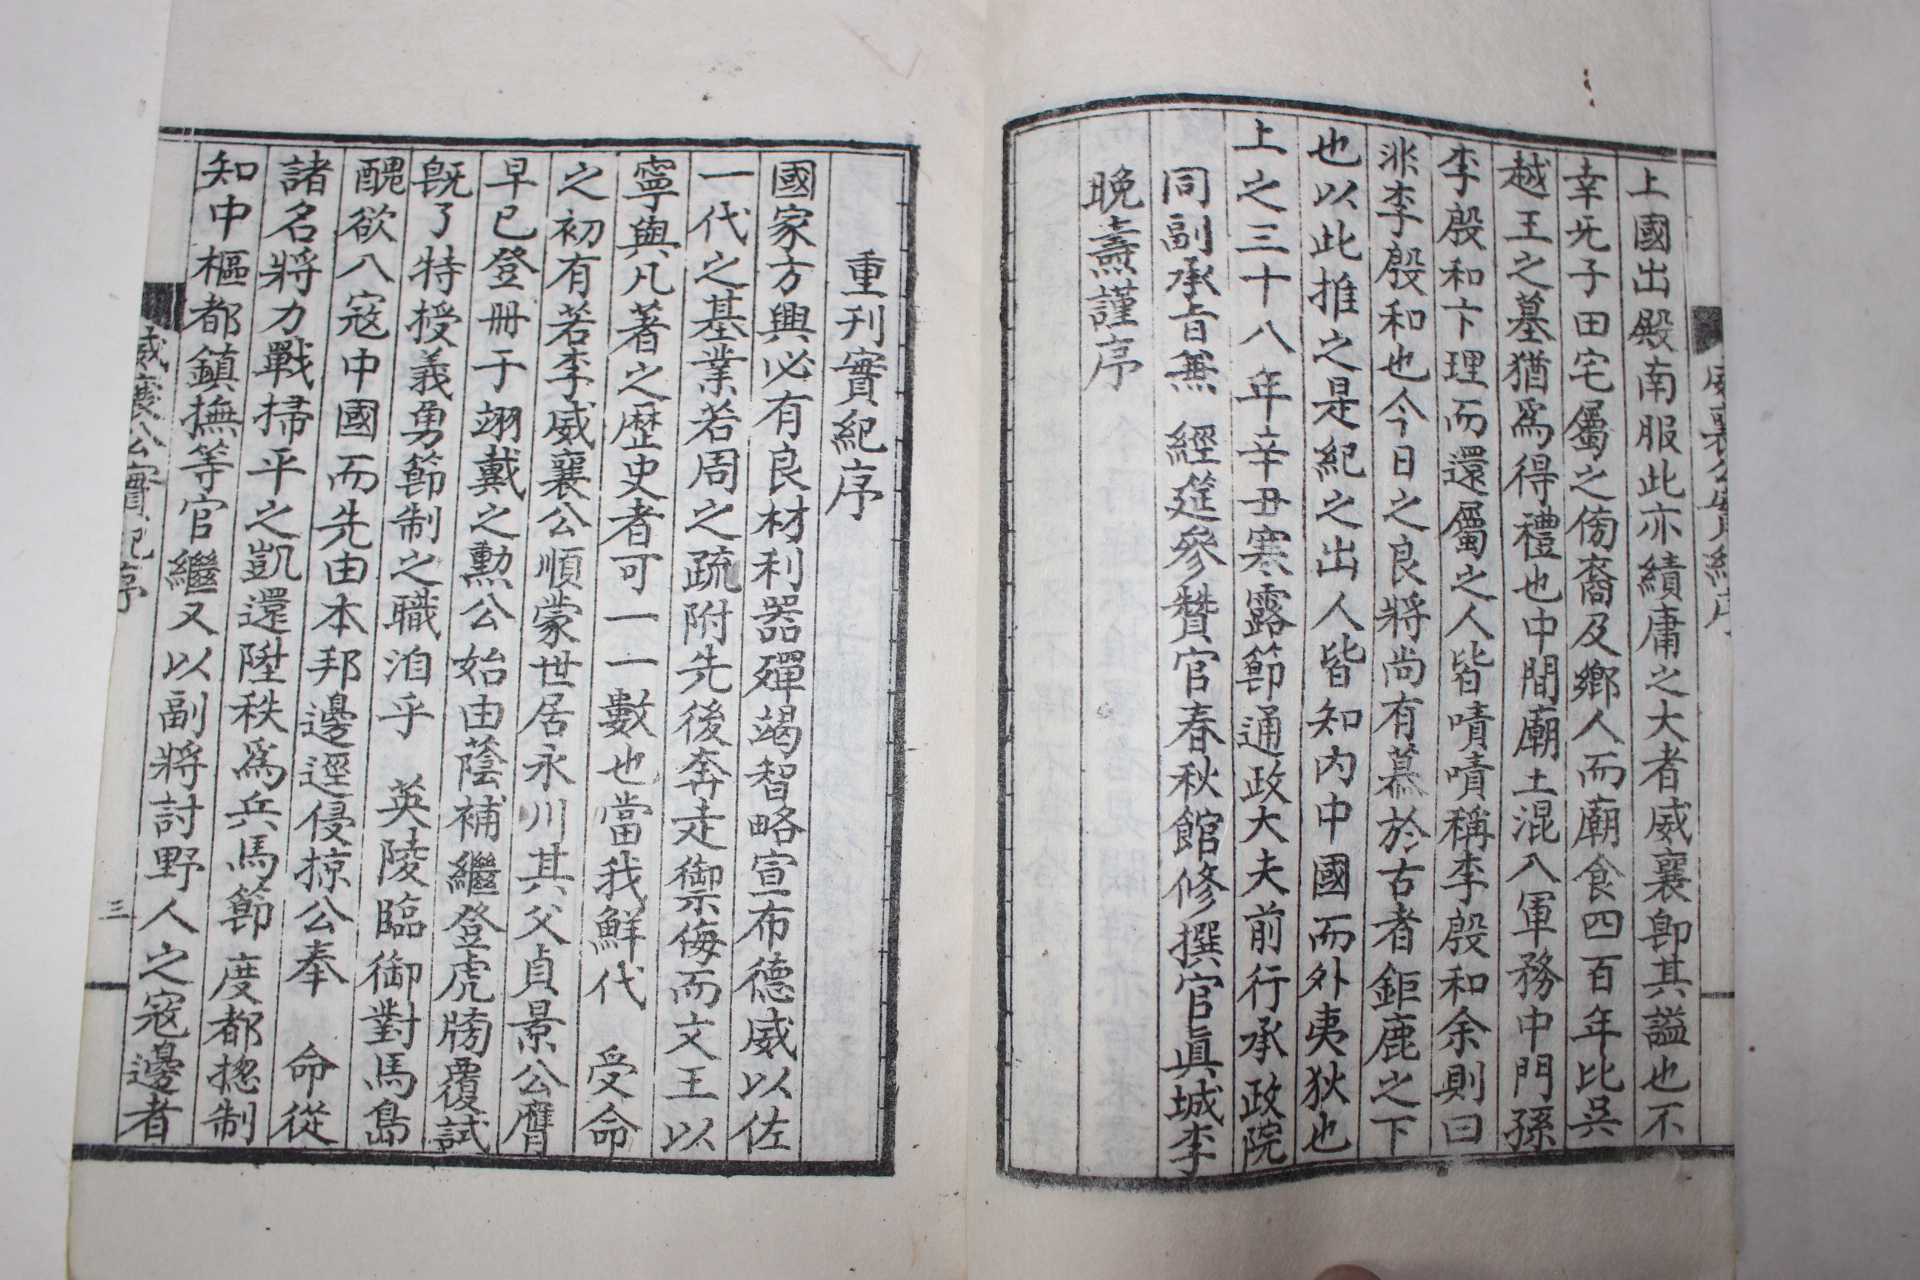 威襄公實紀序
上國出殿南服此亦績庸之大者威襄卽其謚也不
幸旡子田宅屬之傍裔及鄉人而廟食四百年比吳
越王之墓猶爲得禮也中間廟土混入軍務中門孫
李殷和卞理而還屬之人皆嘖嘖稱李殷和余則曰
非李殷和也今日之良將尚有慕於古者鉅鹿之下
也以此推之是紀之出人皆知內中國而外夷狄也
上之三十八年辛丑寒露節通政大夫前行承政院
同副承旨兼 經筵參贊官春秋館修撰官眞城李
晩燾謹序
重刊實紀序
國家方興必有良材利器殫竭智略宣布德威以佐
一代之基業若周之疏附先後奔走御侮而文王以
寧與凡著之歷史者可一一數也當我鮮代 受命
之初有若李威襄公順蒙世居永川其父貞景公膺
早已登冊于翊戴之勳公始由蔭補繼登虎牓覆試
旣了特授義勇節制之職洎乎 英陵臨御對馬島
醜欲八寇中國而先由本邦邊逕侵掠公奉 命從
諸名將力戰掃平之凱還陞秩爲兵馬節度都摠制
知中樞都鎭撫等官繼又以副將討野人之寇邊者
威襄公實紀序
三